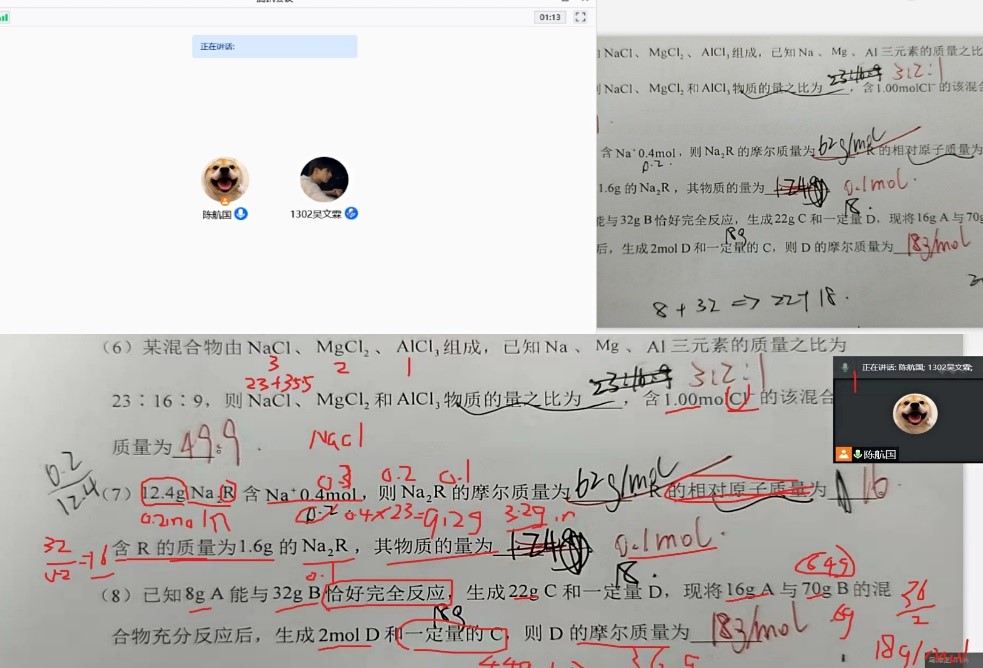 01:13
正在讲话:
陈航国
1302吴文霖
NaCl、MgCl₂、AlCl₃组成，已知 Na 、Mg 、Al 三元素的质量之比
NaCl、MgCl₂ 和 AlCl₃物质的量之比为 3:2:1，含1.00molCl⁻的该混合
含 Na⁺0.4mol，则 Na₂R 的摩尔质量为 62g/mol R 的相对原子质量为
0.2.
1.6g 的 Na₂R，其物质的量为 0.1mol.
能与 32g B恰好完全反应，生成22g C 和一定量 D，现将16g A 与70g
18.
18g
后，生成2mol D 和一定量的 C，则 D 的摩尔质量为 183/mol
8 + 32 => 22+18.
（6）某混合物由 NaCl、MgCl₂ 、AlCl₃ 组成，已知 Na 、Mg 、Al 三元素的质量之比为
3 2 1
23+35.5
23∶16∶9，则 NaCl、MgCl₂ 和 AlCl₃ 物质的量之比为 3:2:1，含1.00molCl⁻的该混合
正在讲话: 陈航国; 1302吴文霖;
陈航国
质量为 49.9 .
NaCl
0.3 0.2 0.1
0.2
12.4
（7）12.4g Na₂R 含 Na⁺ 0.4mol，则 Na₂R 的摩尔质量为 62g/mol R 的相对原子质量为 16.
0.2mol 0.2 0.4×23=9.2g 3.2g
含 R 的质量为1.6g 的 Na₂R，其物质的量为 0.1mol.
32
=16
0.2
18.
64g
（8）已知8g A 能与32g B 恰好完全反应，生成22g C 和一定量 D，现将16g A 与70g B 的混
18g
6g
36
2
合物充分反应后，生成2mol D 和一定量的 C，则 D 的摩尔质量为 183/mol
44g
36g